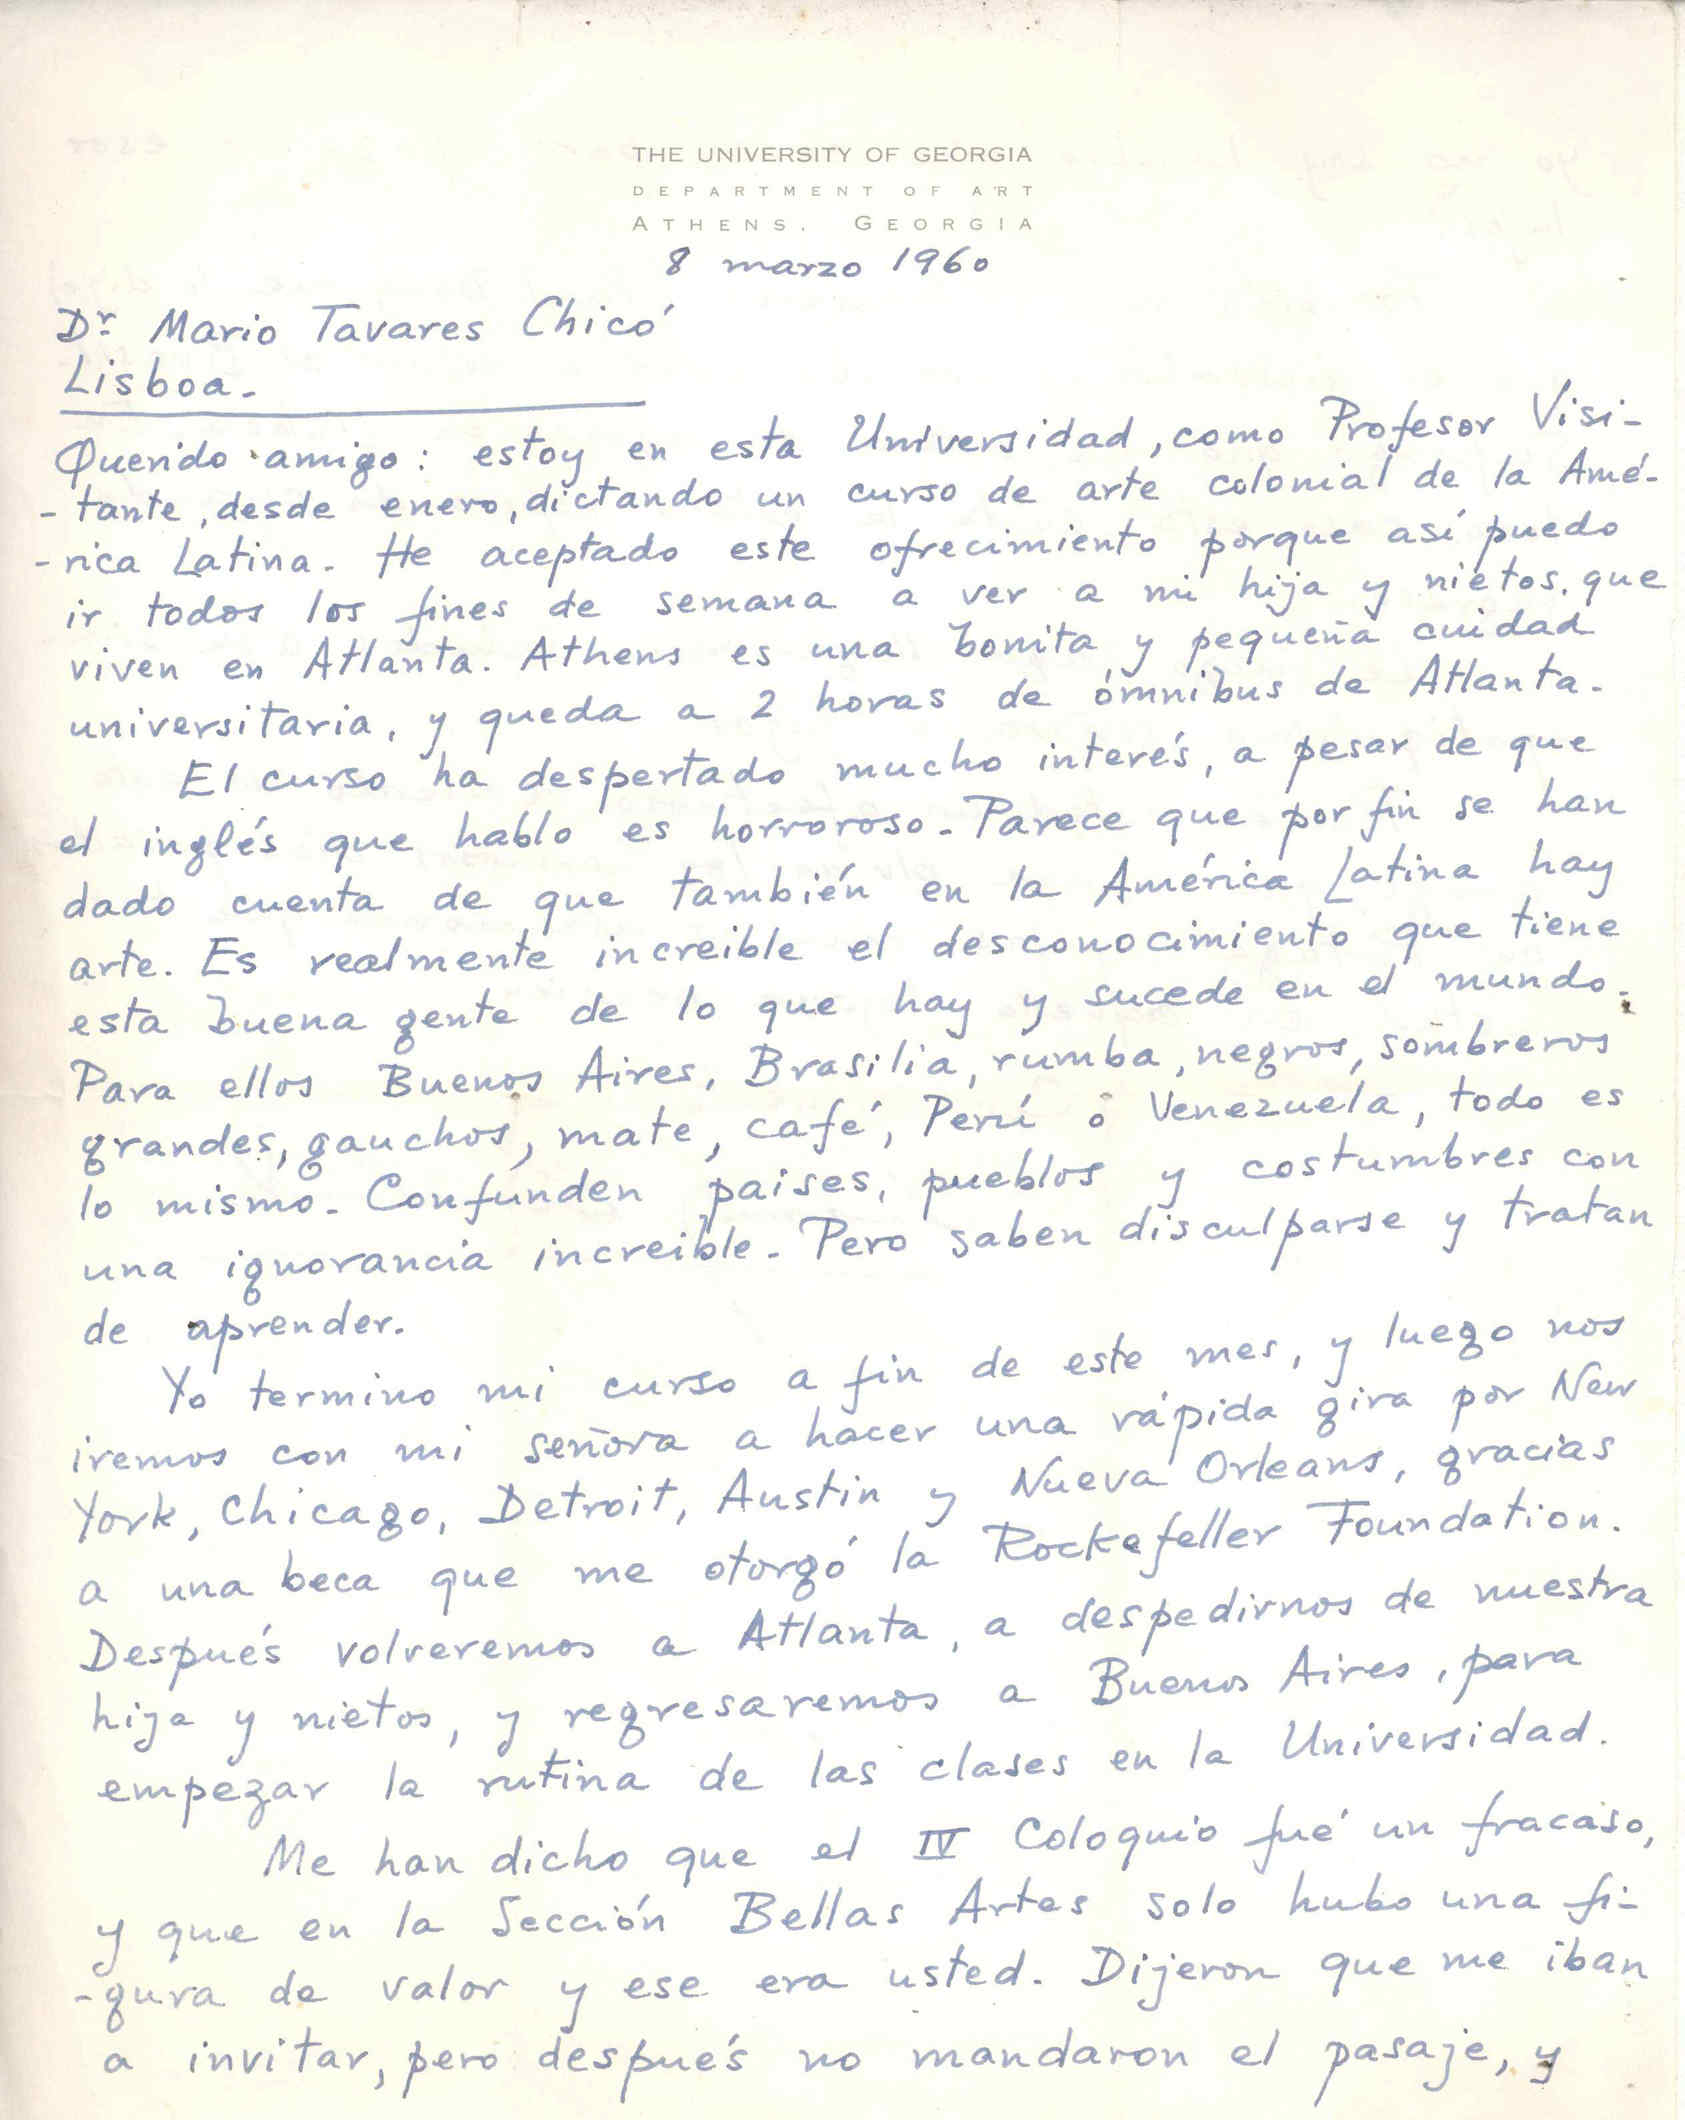 THE UNIVERSITY OF GEORGIA
DEPARTMENT OF ART
ATHENS, GEORGIA
8 marzo 1960
Dr Mario Tavares Chicó
Lisboa.
Querido amigo: estoy en esta Universidad, como Profesor Visi-
-tante, desde enero, dictando un curso de arte colonial de la Amé-
-rica Latina. He aceptado este ofrecimiento porque así puedo
ir todos los fines de semana a ver a mi hija y nietos, que
viven en Atlanta. Athens es una bonita y pequeña cuidad
universitaria, y queda a 2 horas de ómnibus de Atlanta.
El curso ha despertado mucho interés, a pesar de que
el inglés que hablo es horroroso. Parece que por fin se han
dado cuenta de que también en la América Latina hay
arte. Es realmente increible el desconocimiento que tiene
esta buena gente de lo que hay y sucede en el mundo.
Para ellos Buenos Aires, Brasilia, rumba, negros, sombreros
grandes, gauchos, mate, café, Perú o Venezuela, todo es
lo mismo. Confunden paises, pueblos y costumbres con
una ignorancia increible. Pero saben disculparse y tratan
de aprender.
Yo termino mi curso a fin de este mes, y luego nos
iremos con mi señora a hacer una rápida gira por New
York, Chicago, Detroit, Austin y Nueva Orleans, gracias
a una beca que me otorgó la Rockefeller Foundation.
Después volveremos a Atlanta, a despedirnos de nuestra
hija y nietos, y regresaremos a Buenos Aires, para
empezar la rutina de las clases en la Universidad.
Me han dicho que el IV Coloquio fué un fracaso,
y que en la Sección Bellas Artes solo hubo una fi-
-gura de valor y ese era usted. Dijeron que me iban
a invitar, pero después no mandaron el pasaje, y